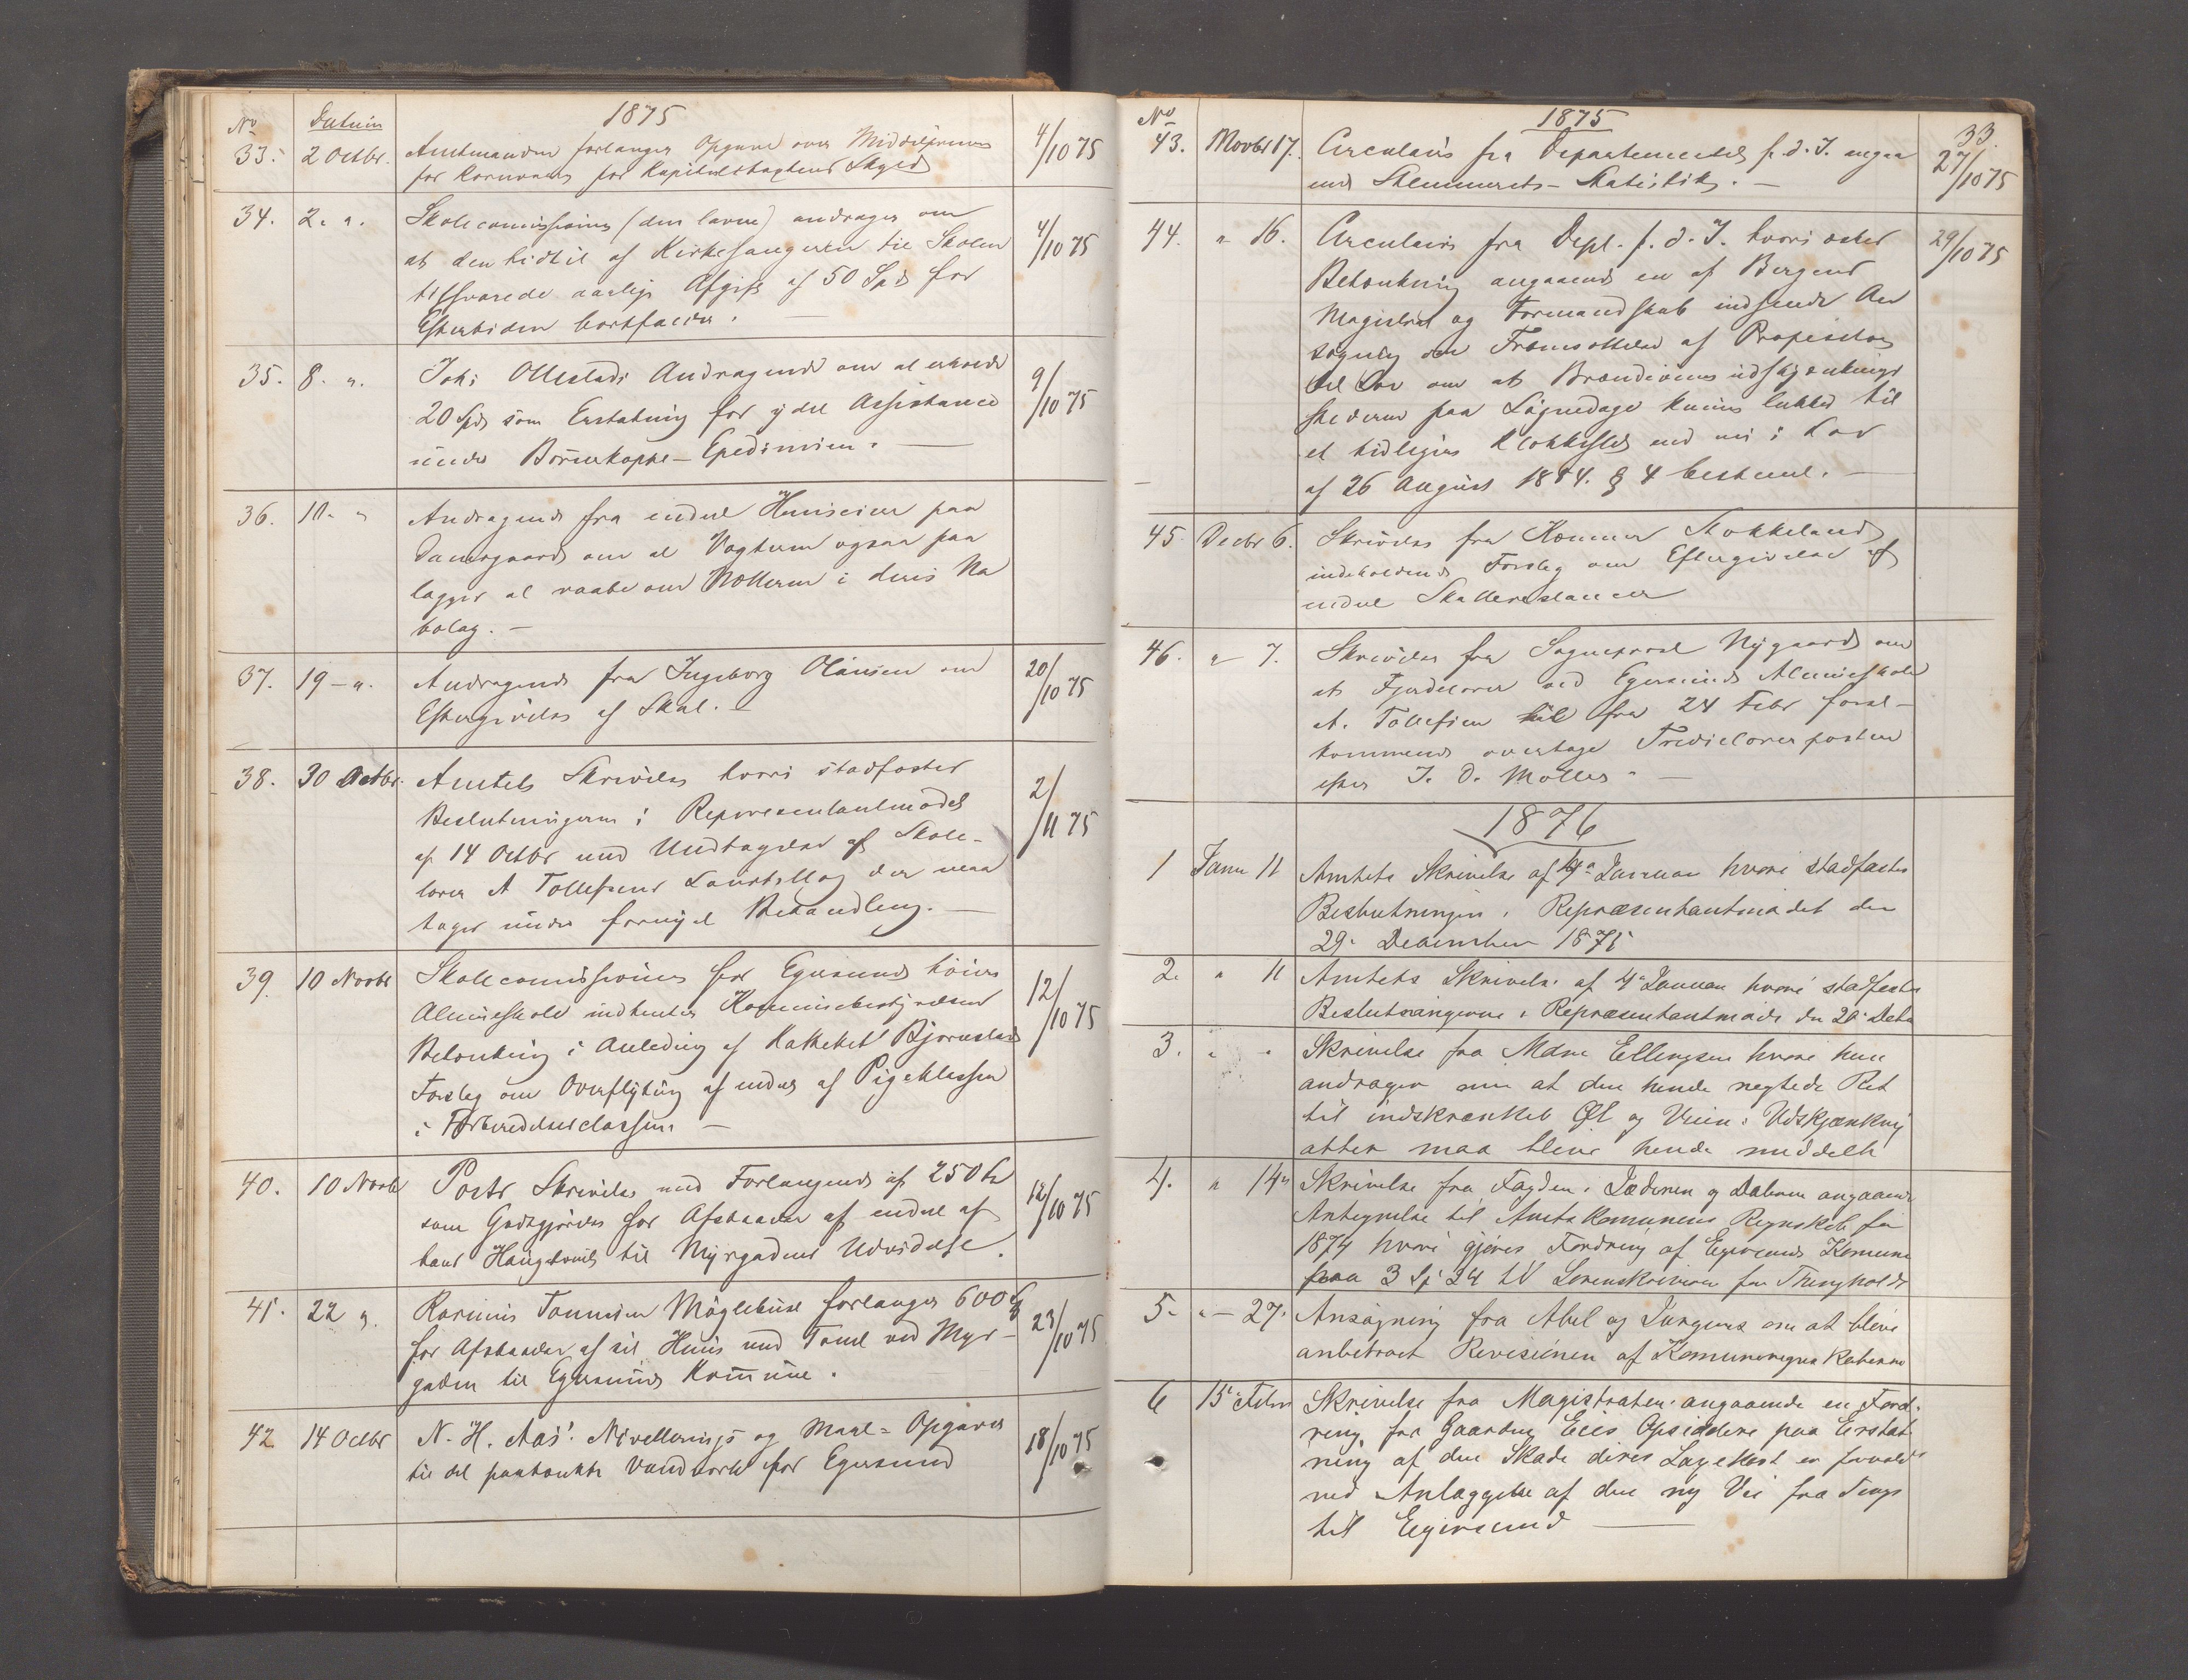 No Datum 1875
33. 2 Octbr. Amtmanden forlanger Opgave over Middelpriserne 4/10 75
for Kornvarer for Kapitelstaxtens Skyld
34. 2. ". Skolecommissionen (den lavere) andrager om 4/10 75
at den hidtil af Kirkesangeren til Skolen
tilsvarede aarlige Afgift af 50 Spd for
Eftertiden bortfalder. —
35. 8. ". Johs Ollestads Andragende om at erholde 9/10 75
20 Spd som Erstatning for ydet Assistance
under Børnekoppe-Epedimien. —
36. 10. " Andragende fra endel Huuseiere paa
Damsgaard om at Vægterne ogsaa paa
lægges at raabe om Nætterne i deres Na
bolag. —
37. 19 — ". Andragende fra Ingeborg Olausen om 20/10 75
Eftergivelse af Skat. —
38. 30 Octbr. Amtets Skrivelse hvori stadfæster 2/11 75
Beslutningerne i Representantmødet
af 14 Octbr med Undtagelse af Skole-
lærer A Tollefsens Lønstillæg der maa
tages under fornyet Behandling. —
39. 10 Novbr Skolecommissionen for Egersunds høiere 12/10 75
Almueskole indhenter Kommunebestyrelsens
Betænkning i Anledning af Katheket Bjørnstads
Forslag om Overflytning af endel af Pigeklassen
i Forberedelsesclassen. —
40. 10 Novbr Skrivelse med Forlangende af 250
som Godtgjørelse for Afstaaelse af endel af
hans Haugetomt til Myrgadens Udvidelse.
12/10 75
41. 22 ". Tønnesen Møglebust forlanger 600 23/10 75
for Afstaaelse af sit Huus med Tomt ved Myr-
gaden til Egersunds Kommune.
42 14 Octbr N. H. Aas' Nivellerings og Maal-Opgaver 18/10 75
til det paatænkte Vandværk for Egersund
No 1875 33.
43. Novbr 17. Circulaire fra Departementet f. d. I. angaa 27/10 75
ende Skemmerets-Statistik. —
44. " 16. Circulaire fra Dept. f. d. I. hvori æsket 29/10 75
Betænkning angaaende en af Bergens
Magistrat og Formandskab indsendt An
søgning om Fremsættelse af Proposition
til Lov om at Brændeviins udskjænkings
stederne paa Løgnedage kunne lukkes til
et tidligere Klokkeslet end nu i Lov
af 26 August 1854. § 4 bestemt. —
45. Decbr 6. Skrivelse fra Kæmner Stokkeland
indeholdende Forslag om Eftergivelse af
endel Skatterestancer
46. " 7. Skrivelse fra Sogneprest Nygaard om
at Fjerdelærer ved Egersunds Almueskole
A. Tollefsen fra 24 Febr forst-
kommende overtage Tredielærerposten
efter J. D. Møller. —
1876
1 Janu 11 Amtets Skrivelse af 4de Januar hvori stadfæstes
Beslutningen i Repræsentantmødet den
29. December 1875
2. " 11 Amtets Skrivelse af 4 Januar hvori stadfæstes
Beslutningerne i Repræsentantmøde den 20
3. " " Skrivelse fra Mdm Ellingsen hvori hun
andrager om at den hende negtede Ret
til indskrænket Øl og Viin: Udskjænkning
atter maa blive hende meddelt
4. " 14 Skrivelse fra Fogden i Jæderen og Dalerne angaaende
Antegnelse til Amtskomunens Regnskab for
1874 hvori gjøres Fordring af Egersunds Komune
paa 3 Sp 24 til Sorenskriveren for Thingholdt
5. " — 27. Ansøgning fra Abel og Jørgens om at blive
anbetroet Revisionen af Komuneregnskaberne
6 15 Febr Skrivelse fra Magistraten angaaende en Ford-
ring fra Gaarden Eies Opsiddere paa Erstat
ning af den Skade deres er forvoldt
ved Anlæggelse af den ny Vei fra Tengs
til Egersund —